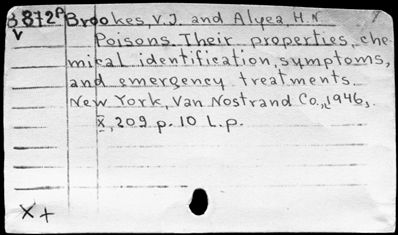 3872P Brookes, V.J. and Alyea, H.N
V
Poisons. Their properties, che-
mical identification, symptoms,
and emergency treatments.
New York, Van Nostrand Co., 1946.
X, 209 p. 10 L.p.
X +